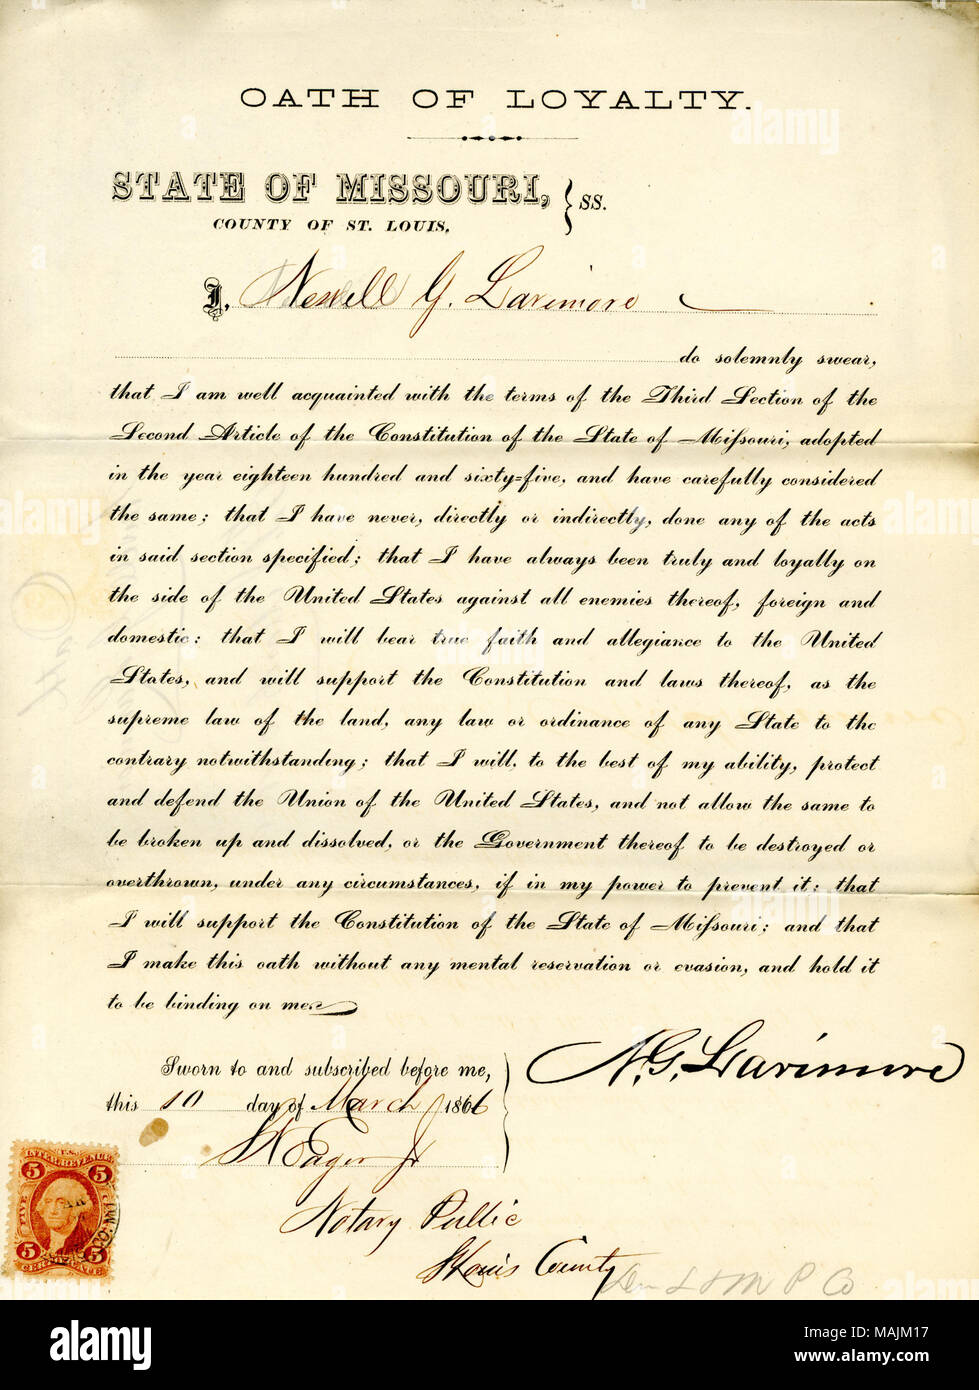 OATH OF LOYALTY.
STATE OF MISSOURI, } SS.
COUNTY OF ST. LOUIS.
I, Newell G. Larimore
do solemnly swear,
that I am well acquainted with the terms of the Third Section of the
Second Article of the Constitution of the State of Missouri, adopted
in the year eighteen hundred and sixty-five, and have carefully considered
the same; that I have never, directly or indirectly, done any of the acts
in said section specified; that I have always been truly and loyally on
the side of the United States against all enemies thereof, foreign and
domestic: that I will bear true faith and allegiance to the United
States, and will support the Constitution and laws thereof, as the
supreme law of the land, any law or ordinance of any State to the
contrary notwithstanding; that I will, to the best of my ability, protect
and defend the Union of the United States, and not allow the same to
be broken up and dissolved, or the Government thereof to be destroyed or
overthrown, under any circumstances, if in my power to prevent it: that
I will support the Constitution of the State of Missouri; and that
I make this oath without any mental reservation or evasion, and hold it
to be binding on me.
N. G. Larimore
Sworn to and subscribed before me,
this 10 day of March 1866
Eager Jr
Notary Public
St Louis County
P Co
U.S.
INTER. REVENUE
5 5
FIVE CENTS
5 5
CERTIFICATE
alamy
alamy
Image ID: MAJM17
www.alamy.com